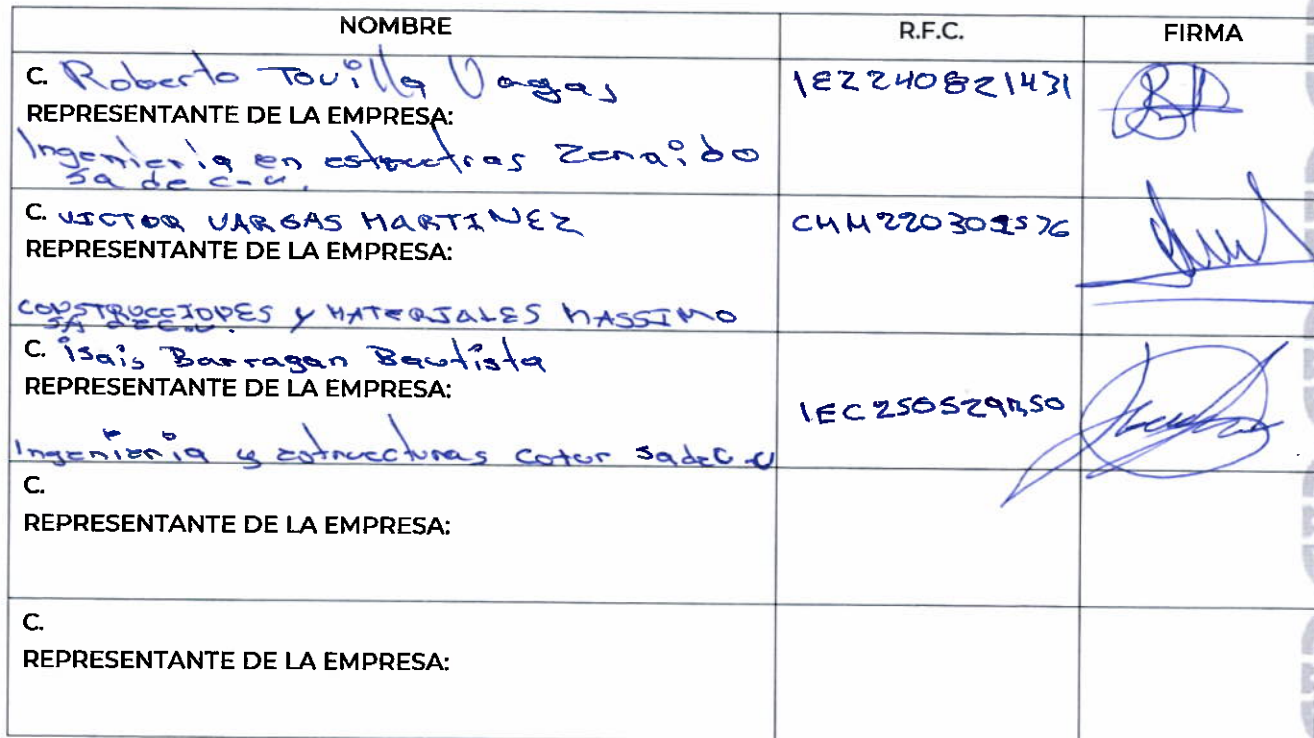 NOMBRE R.F.C. FIRMA
C. Roberto Tovilla Vagas IEZ240821431
REPRESENTANTE DE LA EMPRESA:
Ingenieria en estructras Zenaido
sa de c.v.
C. VICTOR VARGAS MARTINEZ CMM220302576
REPRESENTANTE DE LA EMPRESA:
CONSTRUCCIONES y MATERIALES MASSIMO
SA DE C.V.
C. isais Barragan Bautista
REPRESENTANTE DE LA EMPRESA:
Ingenieria y estructuras cotur sadeC.V
C.
REPRESENTANTE DE LA EMPRESA:
C.
REPRESENTANTE DE LA EMPRESA: